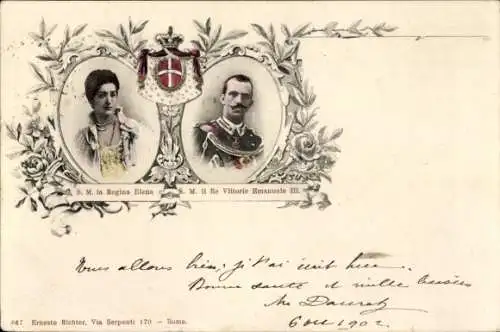 S. M. la Regina Elena
S. M. il Re Vittorio Emanuele III.
Nous allons bien; j'ai écrit hier.
Bonne santé et mille baisers
6 1902
647 Ernesto Richter, Via Serpenti 170 — Roma.